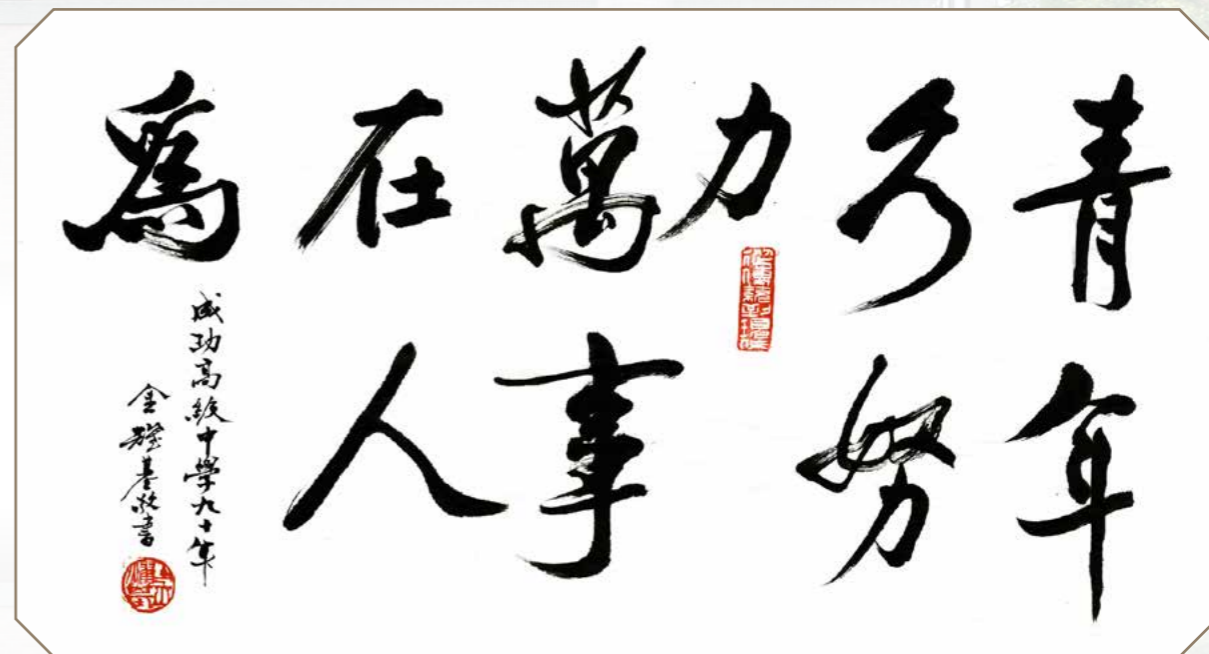 青年
多努
力
萬事
在人
爲
成功高級中學九十年
金耀基敬書